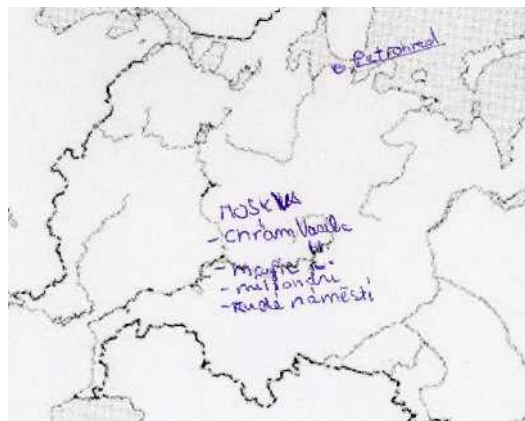 Petrohrad
MOSKVA
- chrám Vasila
- mafie
- milionáři
- Rudé náměstí